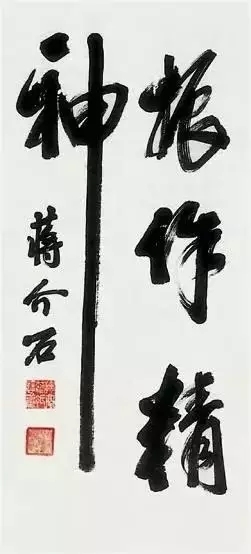 振作精
神
蒋介石